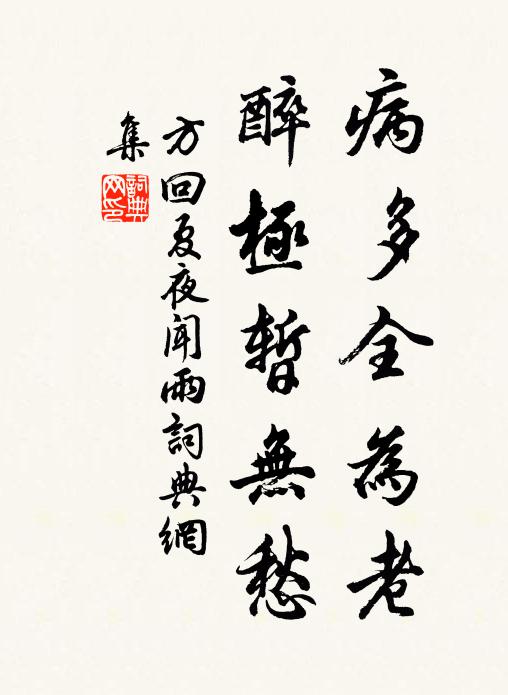 病多全為老
醉極暫無愁
方回夏夜聞雨詞典網
集
詞典
网印